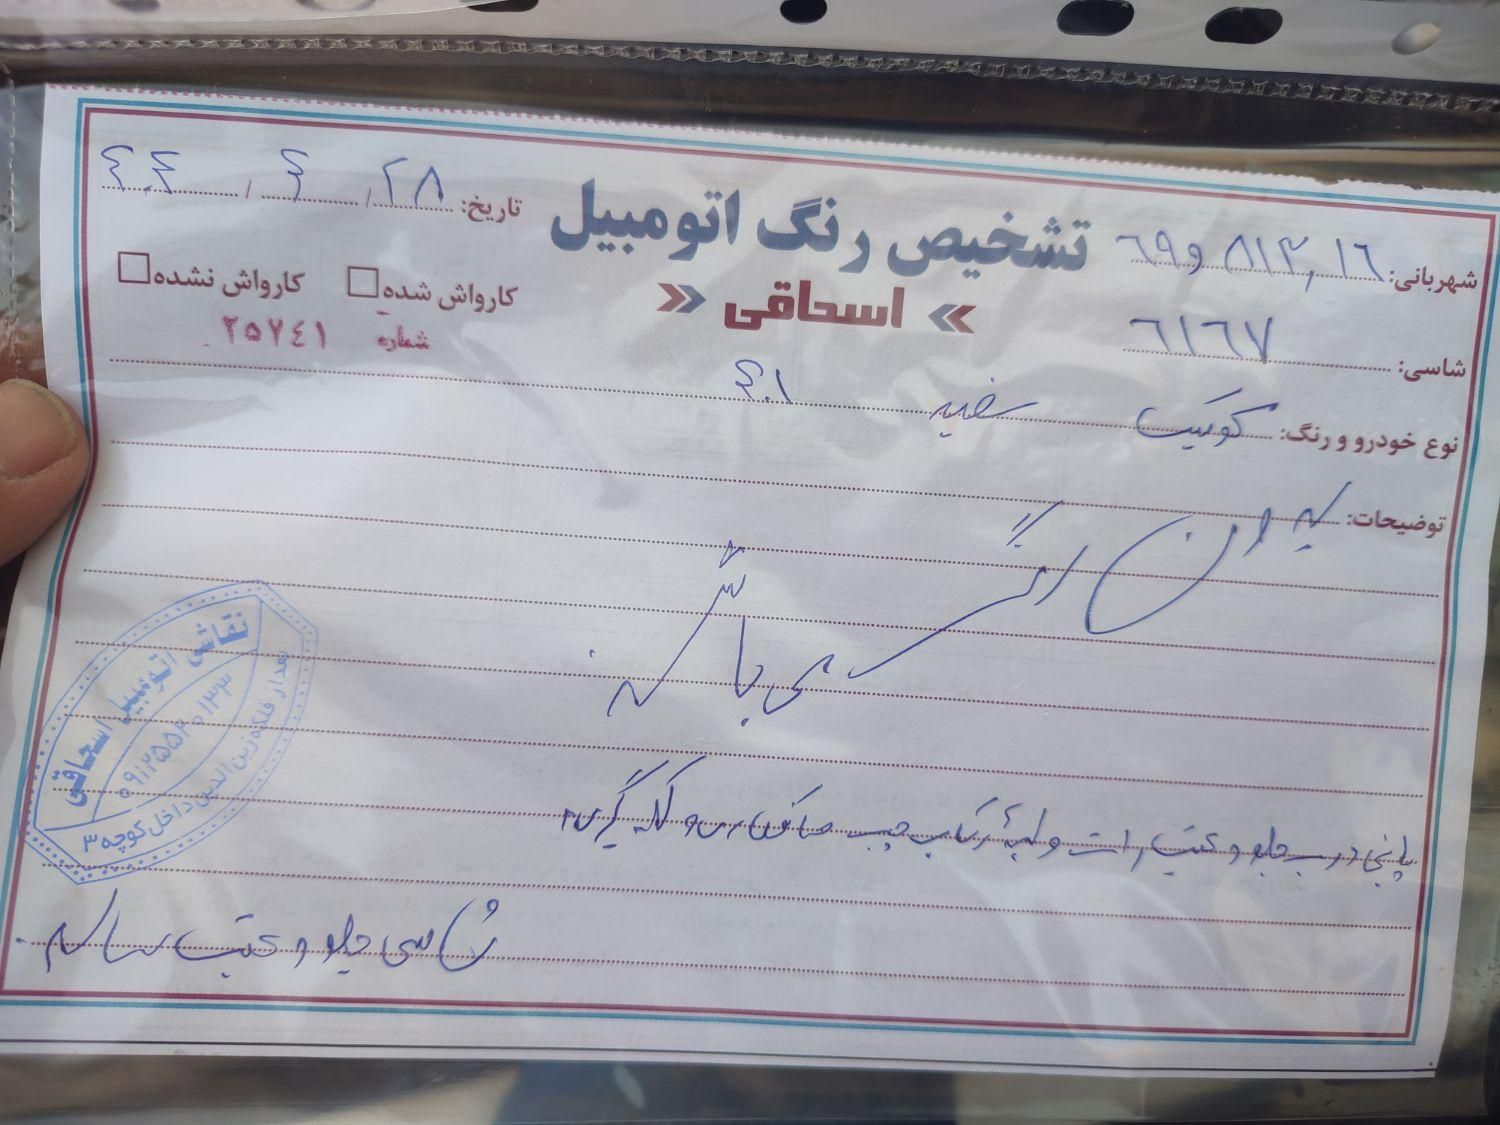 تشخیص رنگ اتومبیل
« اسحاقی »
تاریخ: ۲۸ / ۴ / ۴۰۴
شهربانی: ۱۶ ۸۱۳ و ۶۹
کارواش شده کارواش نشده
شماره ۲۵۷۴۱
شاسی: ۶۱۶۷
نوع خودرو و رنگ: کوییک سفید ۴۰۱
توضیحات:
رنگ
می باشد
پائین درب جلو و عقب راست و لبه رکاب چپ صافکاری و لکه گیری
شاسی جلو و عقب سالم
نقاشی اتومبیل اسحاقی
۰۹۱۲۵۵۲۰۱۳۳
بعد از فلکه زین الدین داخل کوچه ۳